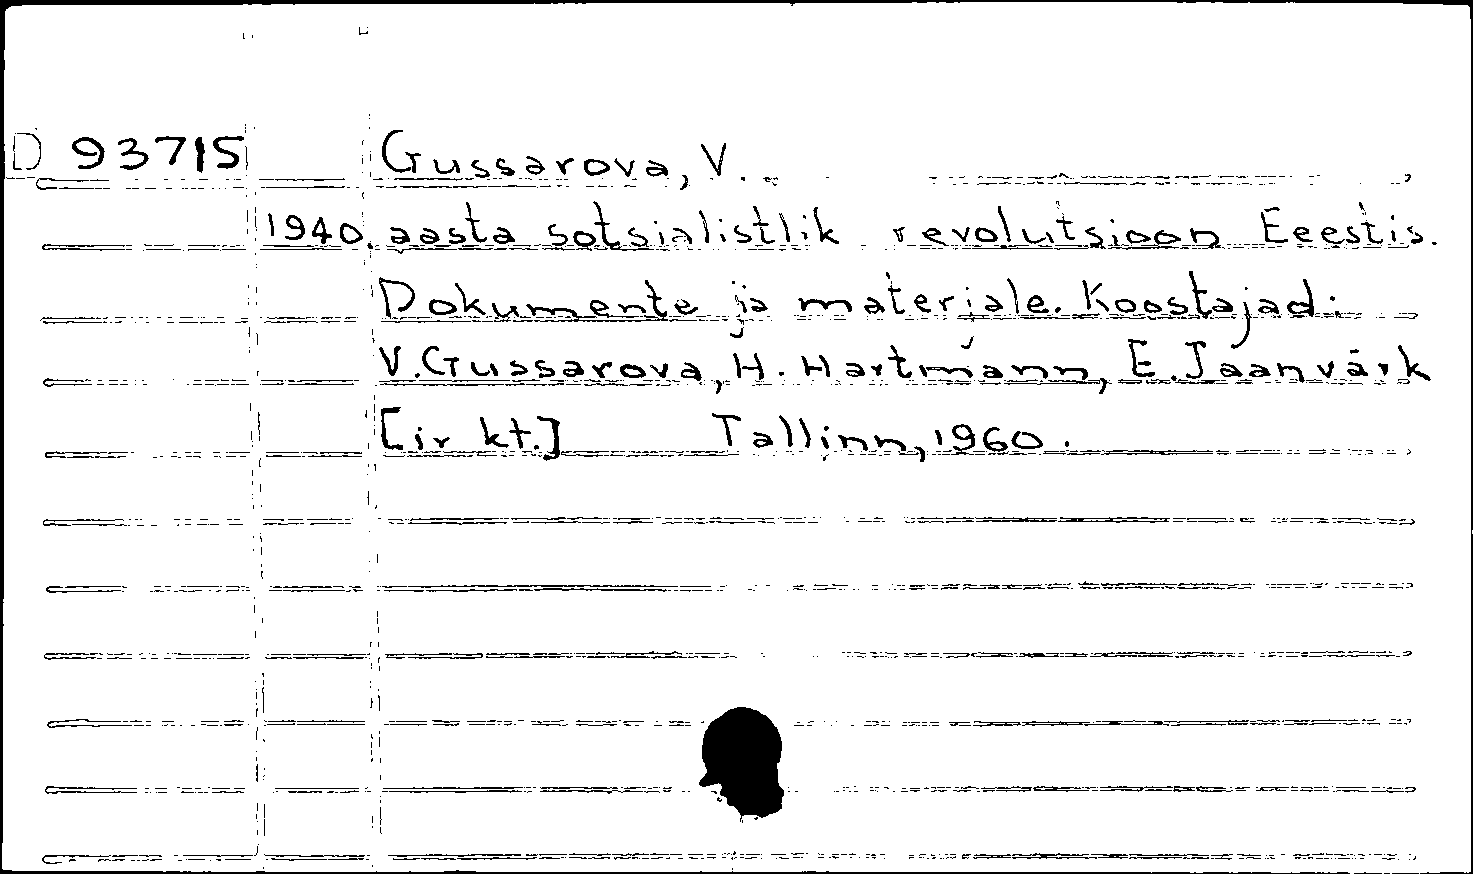 D 93715 Gussarova, V.
1940. aasta sotsialistlik revolutsioon Eeestis.
Dokumente ja materjale. Koostajad:
V. Gussarova, H. Hartmann, E. Jaanvärk
[ir kt.] Tallinn, 1960.